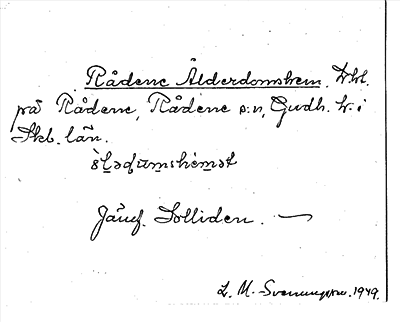 Rådene Ålderdomshem. Bbl.
på Rådene, Rådene s:n, Gudh. h:d i
Skb. län.
Jämf. Solliden. —
L. M. Svenungsson. 1949.